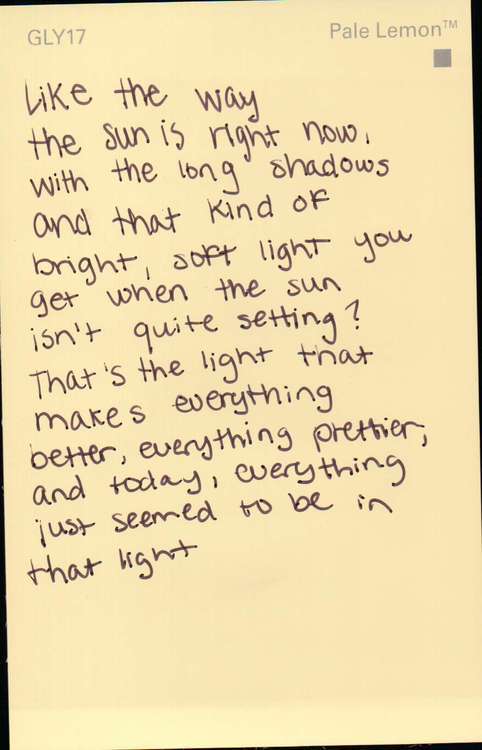 GLY17
Pale Lemon™
Like the way
the sun is right now,
with the long shadows
and that kind of
bright, soft light you
get when the sun
isn't quite setting?
That's the light that
makes everything
better, everything prettier,
and today, everything
just seemed to be in
that light